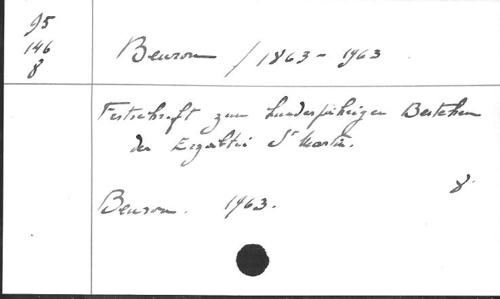 95
146
8
Beuron / 1863 - 1963
Festschrift zum hundertjährigen Bestehen
der Erzabtei St Martin.
8.
Beuron. 1963.